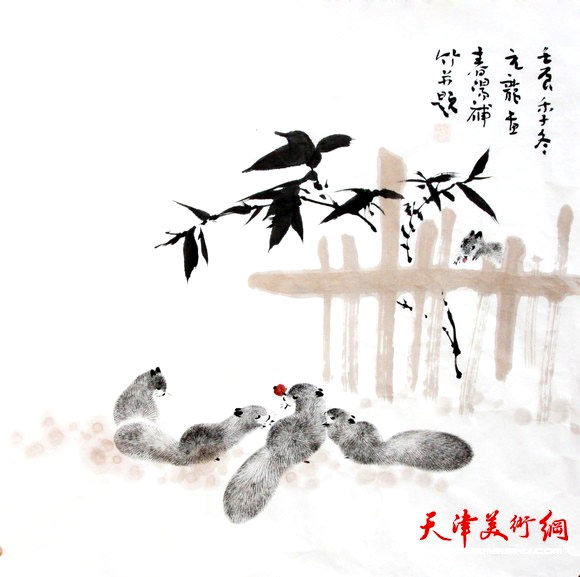 壬辰季冬
元龍畫
春陽補
竹并題
天津美術網